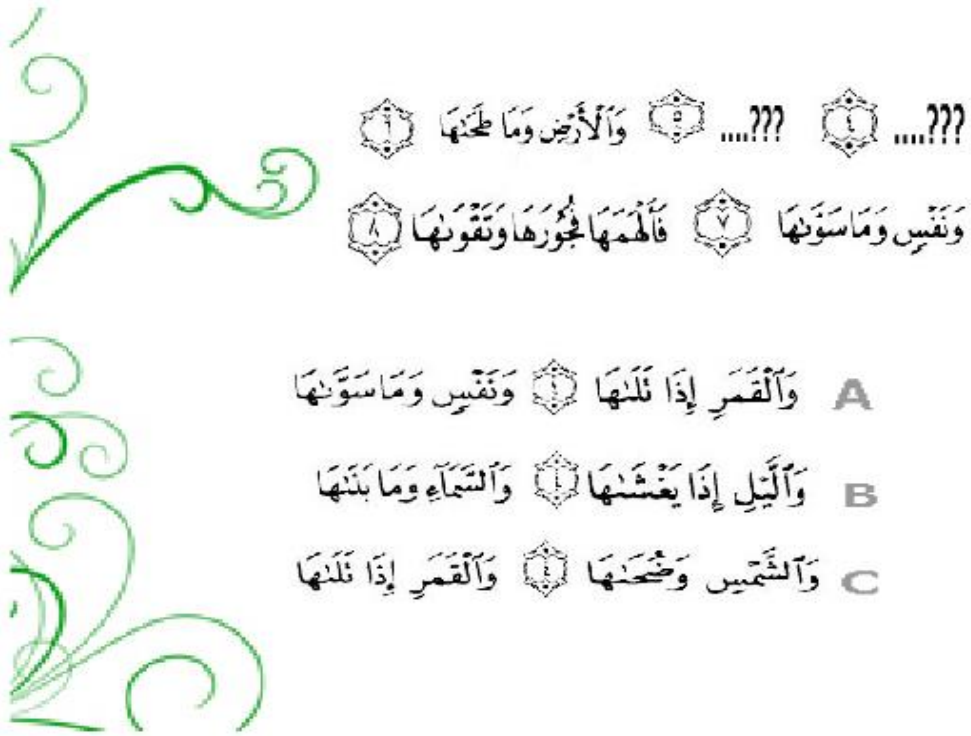 ???.... ٤ ???.... ٥ وَٱلْأَرْضِ وَمَا طَحَىٰهَا ٦
وَنَفْسٍ وَمَا سَوَّىٰهَا ٧ فَأَلْهَمَهَا فُجُورَهَا وَتَقْوَىٰهَا ٨
A وَٱلْقَمَرِ إِذَا تَلَىٰهَا ٤ وَنَفْسٍ وَمَا سَوَّىٰهَا
B وَٱلَّيْلِ إِذَا يَغْشَىٰهَا ٤ وَٱلسَّمَآءِ وَمَا بَنَىٰهَا
C وَٱلشَّمْسِ وَضُحَىٰهَا ٤ وَٱلْقَمَرِ إِذَا تَلَىٰهَا